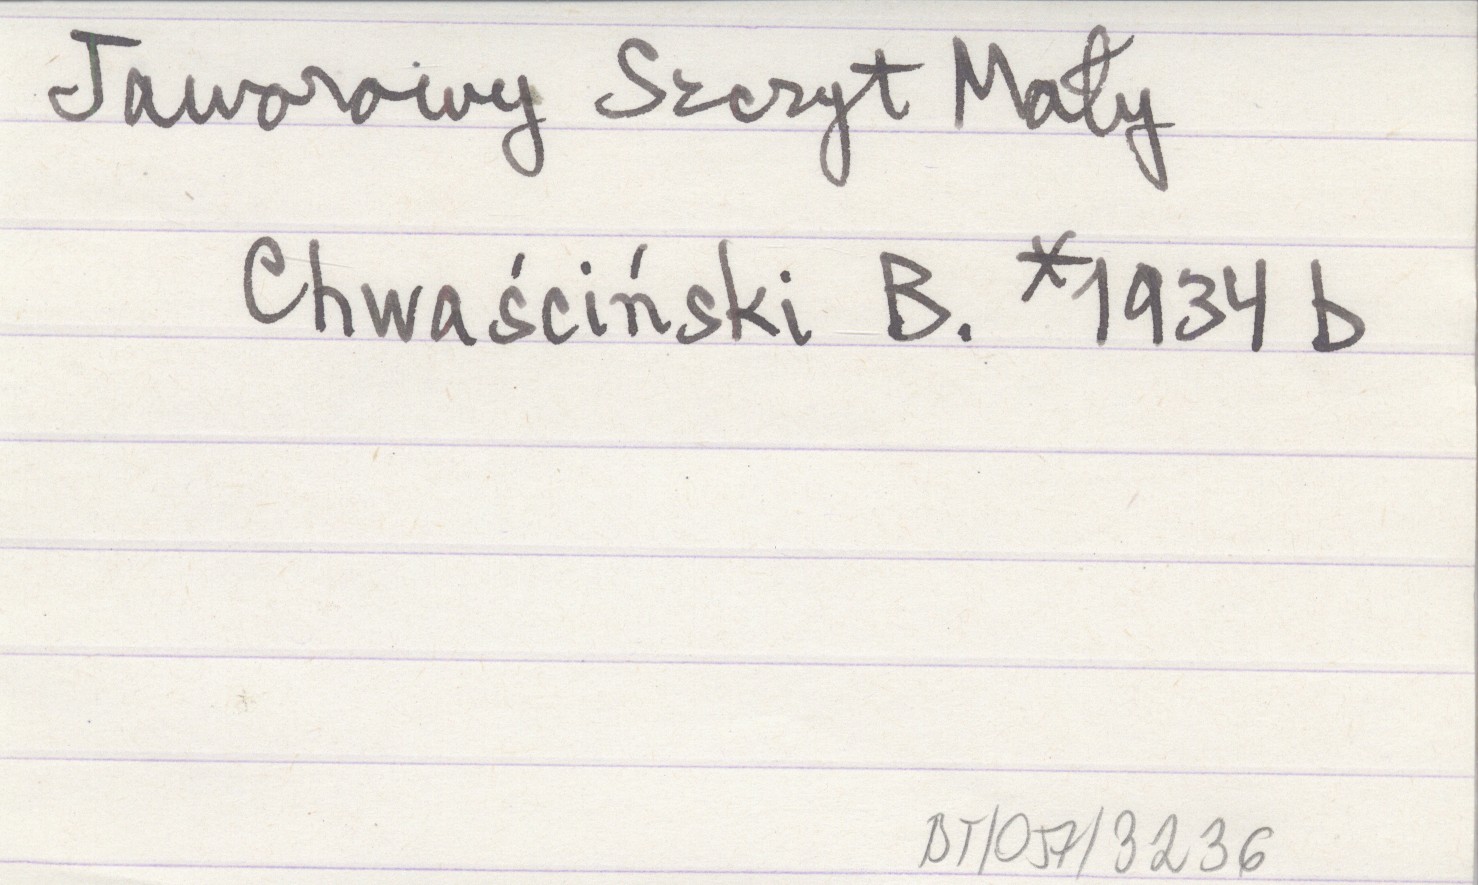 Jaworowy Szczyt Mały
Chwaściński B. *1934 b
BT/057/3236